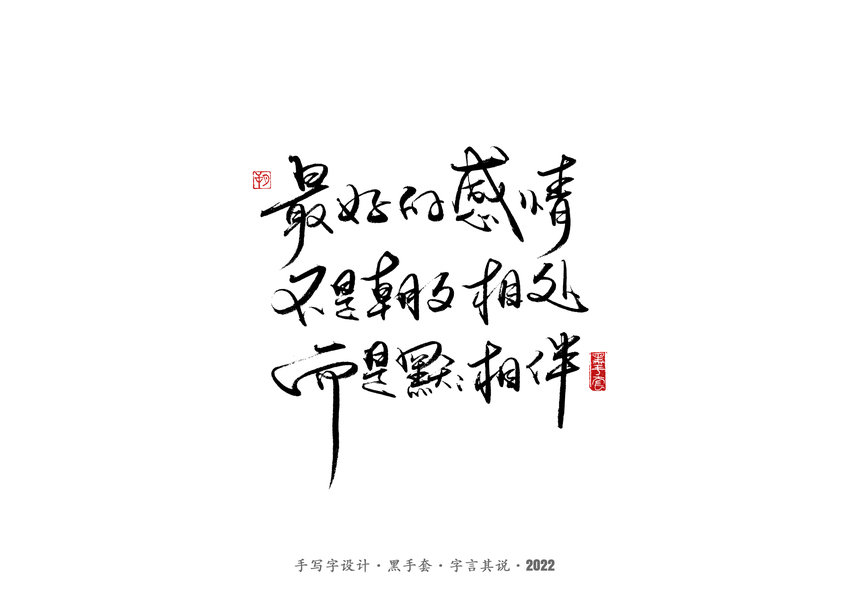 最好的感情
不是朝夕相处
而是默默相伴
黑手套
手写字设计·黑手套·字言其说·2022